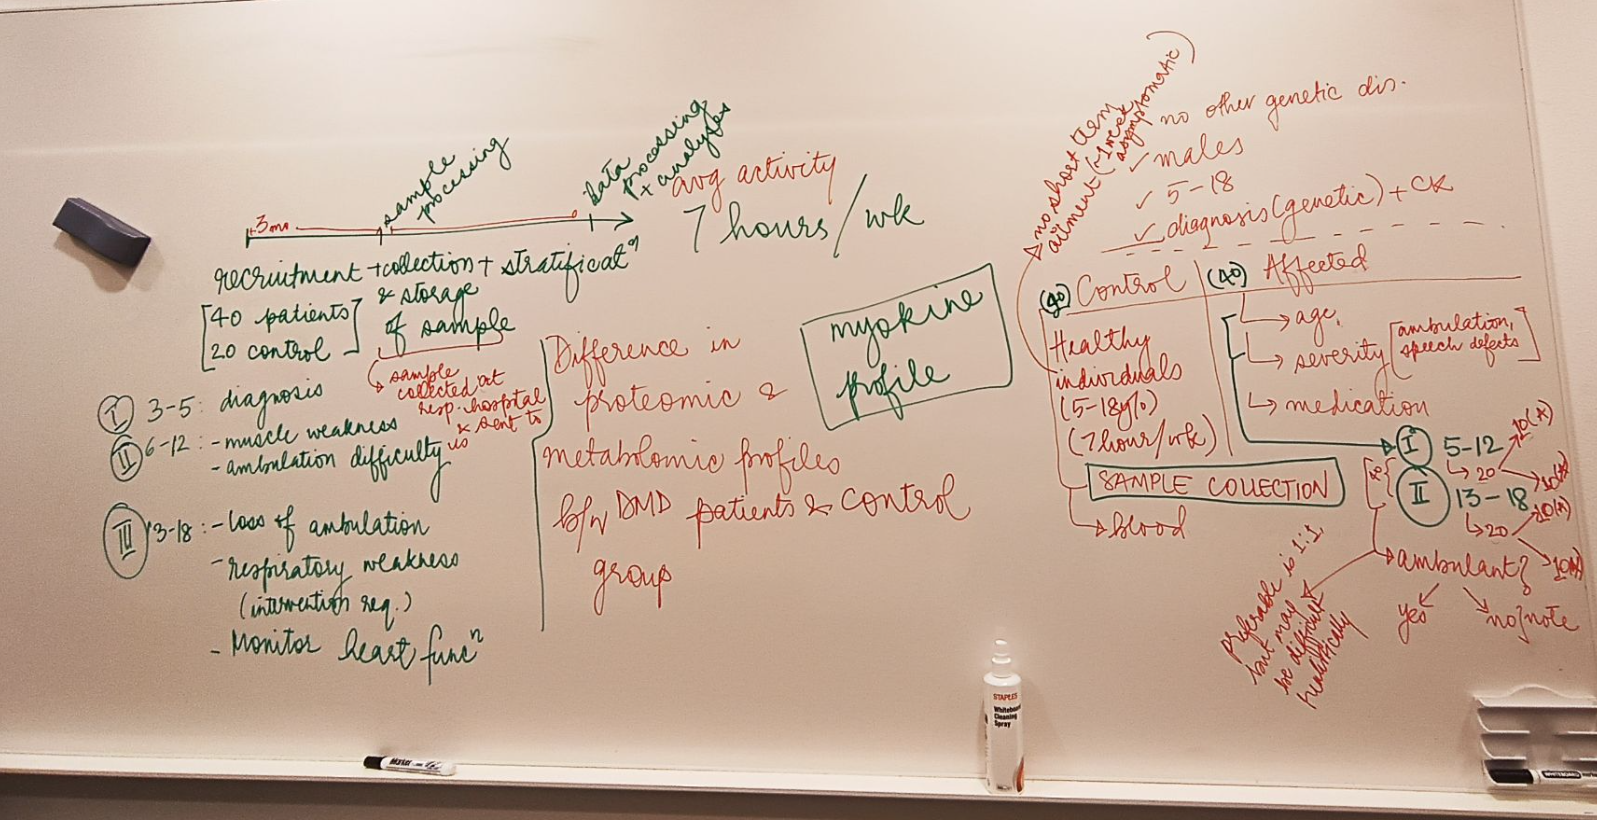 sample
processing
data
processing
+ analyses
3mo
recruitment + collection + stratificatⁿ
[40 patients]
[20 control]
& storage
of sample
↳ sample
collected at
resp. hospital
& sent to
us
I 3-5: diagnosis
II 6-12: - muscle weakness
- ambulation difficulty
III 13-18: - loss of ambulation
- respiratory weakness
(intervention req.)
- Monitor heart funcⁿ
avg activity
7 hours/wk
myokine
profile
Difference in
proteomic &
metabolomic profiles
b/w DMD patients & control
group
no short term
ailment (~1 week
asymptomatic)
no other genetic dis.
✓ males
✓ 5-18
✓ diagnosis (genetic) + CK
Control
(40) Affected
Healthy
individuals
(5-18y/o)
(7hour/wk)
SAMPLE COLLECTION
→ blood
→ age,
↳ severity [ambulation,
speech defects]
↳ medication
I 5-12
↳ 20
II 13-18
↳ 20
→ ambulant?
yes
no}note
preferable is 1:1,
but may
be difficult
realistically
STAPLES
Whiteboard
Cleaning
Spray